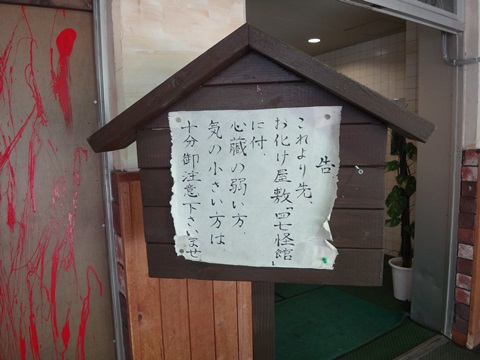 告
これより先、
お化け屋敷「四七怪館」
に付、
心蔵の弱い方、
気の小さい方は
十分御注意下さいませ